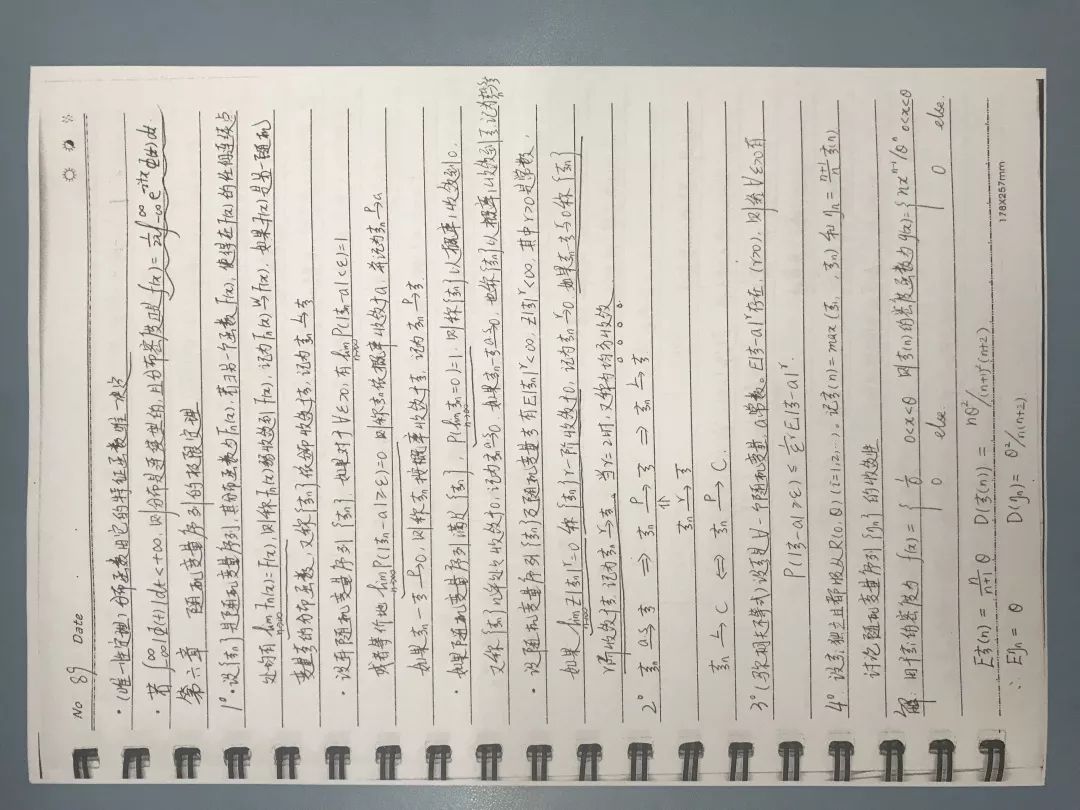 No 89 Date
·(唯一性定理)分布函数由它的特征函数唯一决定
·若∫_{-∞}^{∞}|φ(t)|dt<+∞, 则分布是连续型的, 且分布密度是 f(x)=1/2π∫_{-∞}^{∞}e^{-itx}φ(t)dt.
第六章 随机变量序列的极限定理
1°·设{ξn}是随机变量序列, 其分布函数为Fn(x), 若另一个函数F(x), 使得在F(x)的任何连续点
处均有 lim_{n→∞}Fn(x)=F(x), 则称Fn(x)弱收敛到F(x), 记为Fn(x) →w F(x). 如果F(x)是另一随机
变量ξ的分布函数, 又称{ξn}依分布收敛于ξ, 记为ξn →L ξ
·设有随机变量序列{ξn}, 如果对于∀ε>0, 有 lim_{n→∞}P(|ξn-a|<ε)=1
或者等价地 lim_{n→∞}P(|ξn-a|≥ε)=0 则称ξn依概率收敛于a, 并记为ξn →P a
如果ξn-ξ →P 0, 则称ξn按概率收敛于ξ, 记为ξn →P ξ.
·如果随机变量序列满足{ξn}, P(lim_{n→∞}ξn=0)=1. 则称{ξn}以概率1收敛到0.
又称{ξn}几乎处处收敛于0, 记为 →a.s. 0. 如果ξn-ξ →a.s. 0, 也称{ξn}以概率1收敛到ξ
·设随机变量序列{ξn}及随机变量ξ有E|ξn|^r<∞, E|ξ|^r<∞, 其中r>0是常数,
如果 lim_{n→∞}E|ξn|^r=0 称{ξn}r-阶收敛于0, 记为ξn →r 0. 如果ξn-ξ →r 0称{ξn}
r阶收敛于ξ, 记为ξn →r ξ, 当r=2时, 又称为均方收敛
2° ξn →a.s. ξ ⇒ ξn →P ξ ⇒ ξn →L ξ
⇑
ξn →r ξ
ξn →L C ⇔ ξn →P C.
3°(马尔可夫不等式) 设ξ是一个随机变量, a常数. E|ξ-a|^r存在, (r>0), 则对∀ε>0有
P(|ξ-a|≥ε) ≤ 1/ε^r E|ξ-a|^r.
4°. 设ξi独立且都服从R(0,θ)(i=1,2,…). 记ξ(n)=max(ξ1, …, ξn) 和 ηn = (n+1)/n ξ(n)
讨论随机变量序列{ηn}的收敛性
解: 由于ξi的密度为 f(x)={ 1/θ 0<x<θ 则ξ(n)的密度函数为 g(x)={ nx^{n-1}/θ^n 0<x<θ
0 else. 0 else.
Eξ(n) = n/(n+1) θ D(ξ(n)) = nθ²/(n+1)²(n+2)
∴ Eηn = θ D(ηn) = θ²/n(n+2)
178X257mm